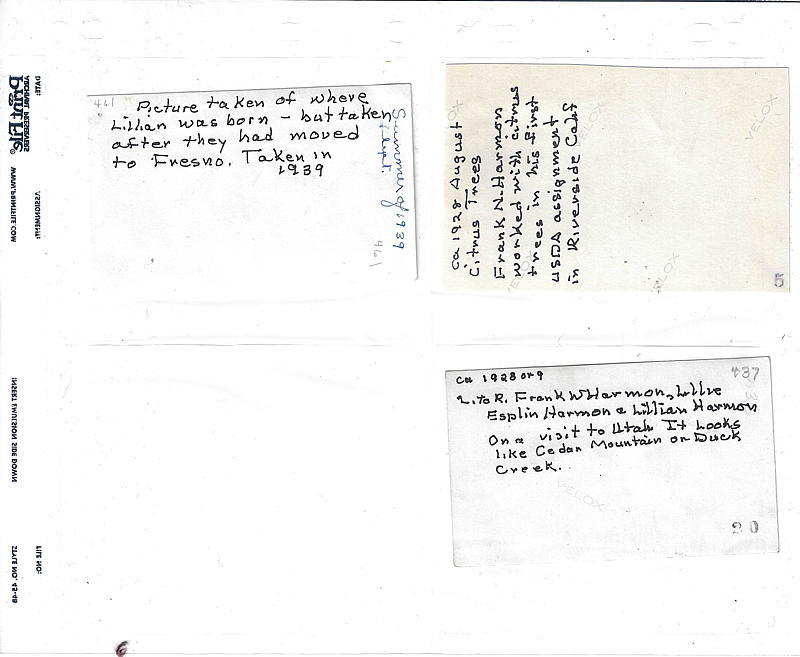 461
Picture taken of where
Lillian was born - but taken
after they had moved
to Fresno. Taken in
1939
Summer of 1939
Sept.
461
ca 1928 August
Citrus Trees
Frank N. Harmon
worked with citrus
trees in his first
USDA assignment
in Riverside Calif
VELOX
VELOX
VELOX
VELOX
VELOX
5
ca 1928 or 9
437
L. to R. Frank W Harmon, Lillie
Esplin Harmon & Lillian Harmon
On a visit to Utah It Looks
like Cedar Mountain or Duck
Creek.
VELOX
20
DATE:
ARCHIVAL PRESERVERS
Print File®
WWW.PRINTFILE.COM
ASSIGNMENT:
INSERT EMULSION SIDE DOWN
FILE NO:
STYLE NO. 45-4B